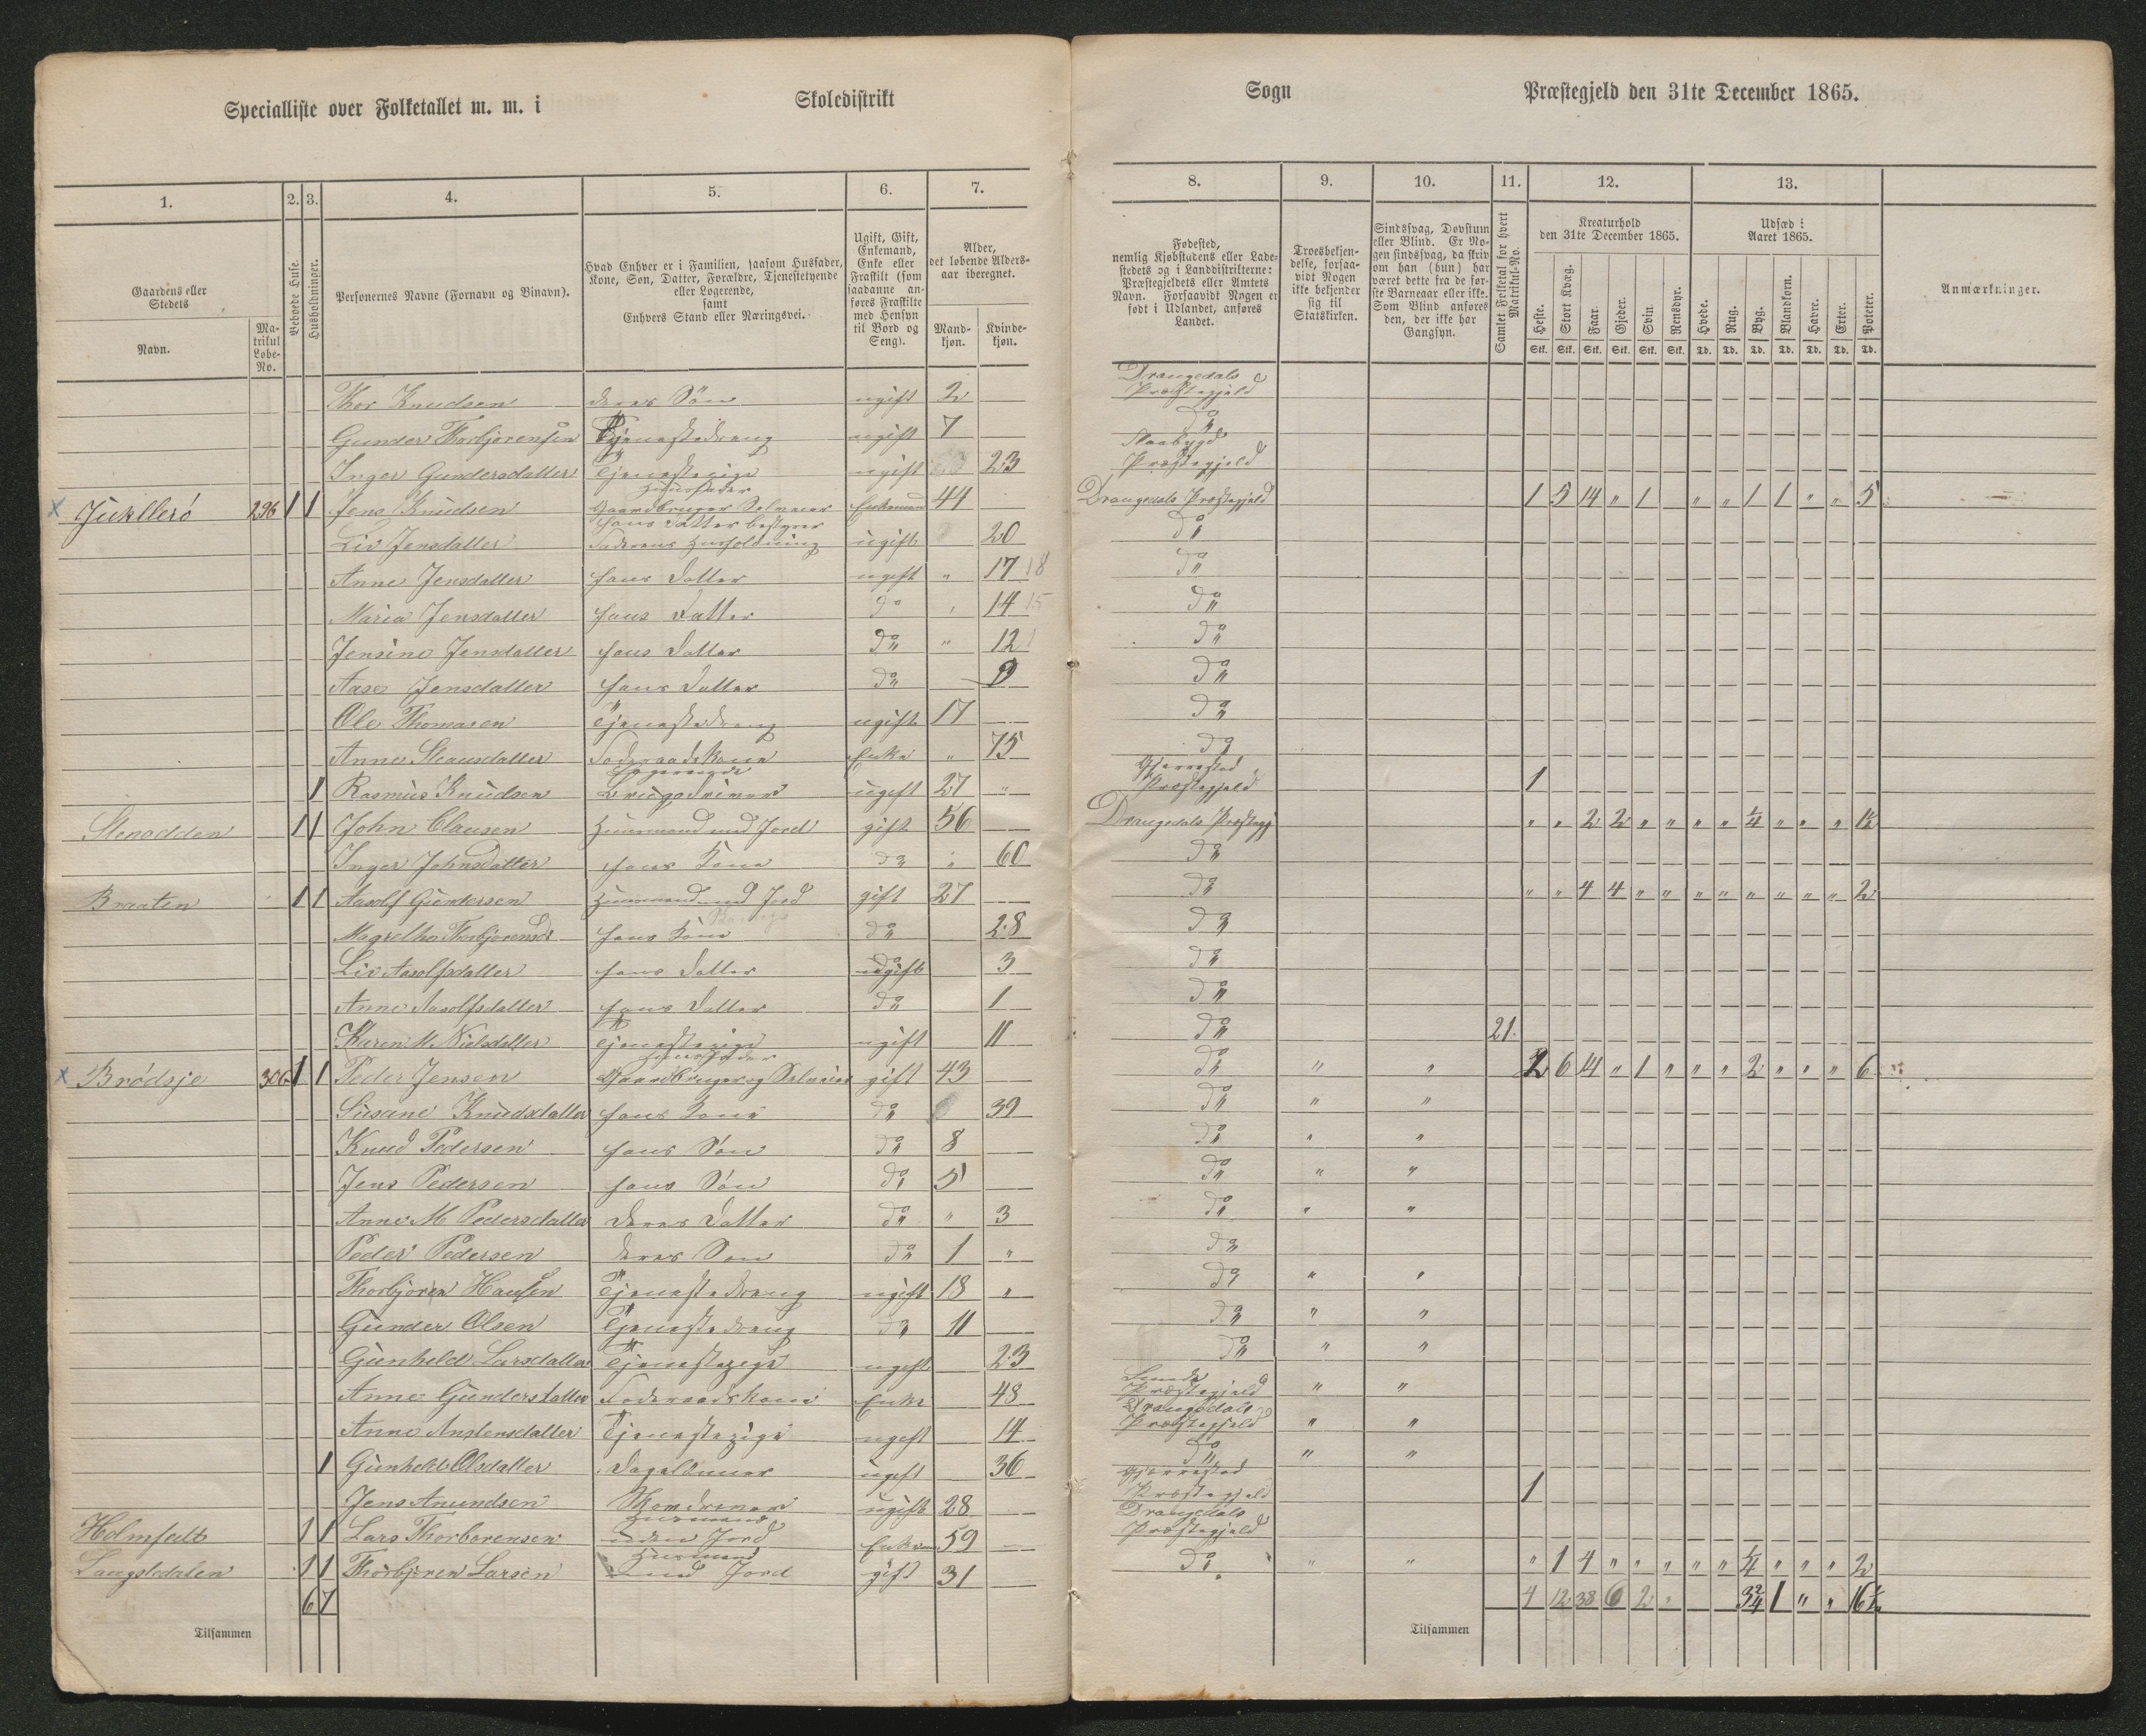 Specialliste over Folketallet m. m. i Skoledistrikt Sogn Præstegjeld den 31te December 1865.
1. 2. 3. 4. 5. 6. 7. 8. 9. 10. 11. 12. 13.
Gaardens eller Stedets
Navn.
Matrikul Løbe-No.
Beboede Huse.
Husholdninger.
Personernes Navne (Fornavn og Binavn).
Hvad Enhver er i Familien, saasom Husfader, Kone, Søn, Datter, Forældre, Tjenestetyende eller Logerende, samt Enhvers Stand eller Næringsvei.
Ugift, Gift, Enkemand, Enke eller Fraskilt (som saadanne anføres Fraskilte med Hensyn til Bord og Seng).
Alder, det løbende Aldersaar iberegnet.
Mandkjøn.
Kvindekjøn.
Fødested, nemlig Kjøbstadens eller Ladestedets og i Landdistrikterne: Præstegjeldets eller Amtets Navn. Forsaavidt Nogen er født i Udlandet, anføres Landet.
Troesbekjendelse, forsaavidt Nogen ikke bekjender sig til Statskirken.
Sindssvag, Døvstum eller Blind. Er Nogen sindssvag, da skrives om han (hun) har været dette fra de første Barneaar eller ikke. Som Blind anføres den, der ikke har Gangsyn.
Samlet Folketal for hvert Matrikul-No.
Kreaturhold den 31te December 1865.
Heste. Stort Kvæg. Faar. Gjeder. Svin. Rensdyr.
Stk. Stk. Stk. Stk. Stk. Stk.
Udsæd i Aaret 1865.
Hvede. Rug. Byg. Blandkorn. Havre. Erter. Poteter.
Td. Td. Td. Td. Td. Td. Td.
Anmærkninger.
Thor Knudsen deres Søn ugift 2 Drangedals Præstegjeld
Gunder Thorbjørensen Tjenestedreng ugift 7 do
Inger Gundersdatter Tjenestepige ugift 23 Præstegjeld
296 1 1 Jens Knudsen Huusfader Gaardbruger Selveier Enkemand 44 Drangedals Præstegjeld 1 5 14 " 1 " " 1 1 " " 5
Liv Jensdatter hans Datter bestyrer Faderens Husholdning ugift 20 do
Anne Jensdatter hans Datter ugift " 17 18 do
Maria Jensdatter hans Datter do 14 15 do
Jensine Jensdatter hans Datter do " 12 do
Aase Jensdatter hans Datter do 9 do
Ole Thomasen Tjenestedreng ugift 17 do
Anne Steansdatter Foderaadskone Enke " 75 do
1 Rasmus Knudsen Logerende ugift 27 " Gjerrestad Præstegjeld 1
Stenodden 1 1 John Clausen Huusmand med Jord gift 56 Drangedals Præstegj " " 2 2 " " " " 1/4 " " " 1½
Inger Johnsdatter hans Kone do " 60 do
Braaten 1 1 Aasolf Gundersen Huusmand med Jord gift 27 do " " 4 4 " " " " " " " " 2
Magrelhe Thorbjørensd hans Kone do 28 do
Liv Aasolfsdatter hans Datter ugift do 3 do
Anne Aasolfsdatter hans Datter do 1 do
Karen M. Nielsdatter Tjenestepige ugift 11 do 21.
Brødsje 306 1 1 Peder Jensen Huusfader Gaardbruger og Selveier gift 43 do " " 2 6 14 " 1 " " " 2 " " " 6
Susane Knudsdatter hans Kone do 39 do " "
Knud Pedersen hans Søn do 8 do " "
Jens Pedersen hans Søn do 5 do " "
Anne M Pedersdatter deres Datter do " 3 do " "
Peder Pedersen deres Søn do 1 " do
Thorbjøren Hansen Tjenestedreng ugift 18 " do " "
Gunder Olsen Tjenestedreng do 11 do " "
Gunheld Larsdatter Tjenestepige ugift 23 do " "
Anne Gundersdatter Foderaadskone Enke 48 Præstegjeld " "
Anne Anstensdatter Tjenestepige ugift 14 Drangedals Præstegjeld " "
1 Gunheld Olsdatter ugift 36 do " "
Jens Anundsen ugift 28 Gjerrestad Præstegjeld 1
Holmfalt 1 1 Lars Thorborensen Huusmand uden Jord Enkem 59 Drangedals Præstegjeld
Langsledalen 1 1 Thorbjøren Larsen Huusmand med Jord gift 31 do " " " 1 4 " " " " " 1/4 " " " 2
6 7 4 12 38 6 2 " 3 2/4 1 " " 16½
Tilsammen Tilsammen